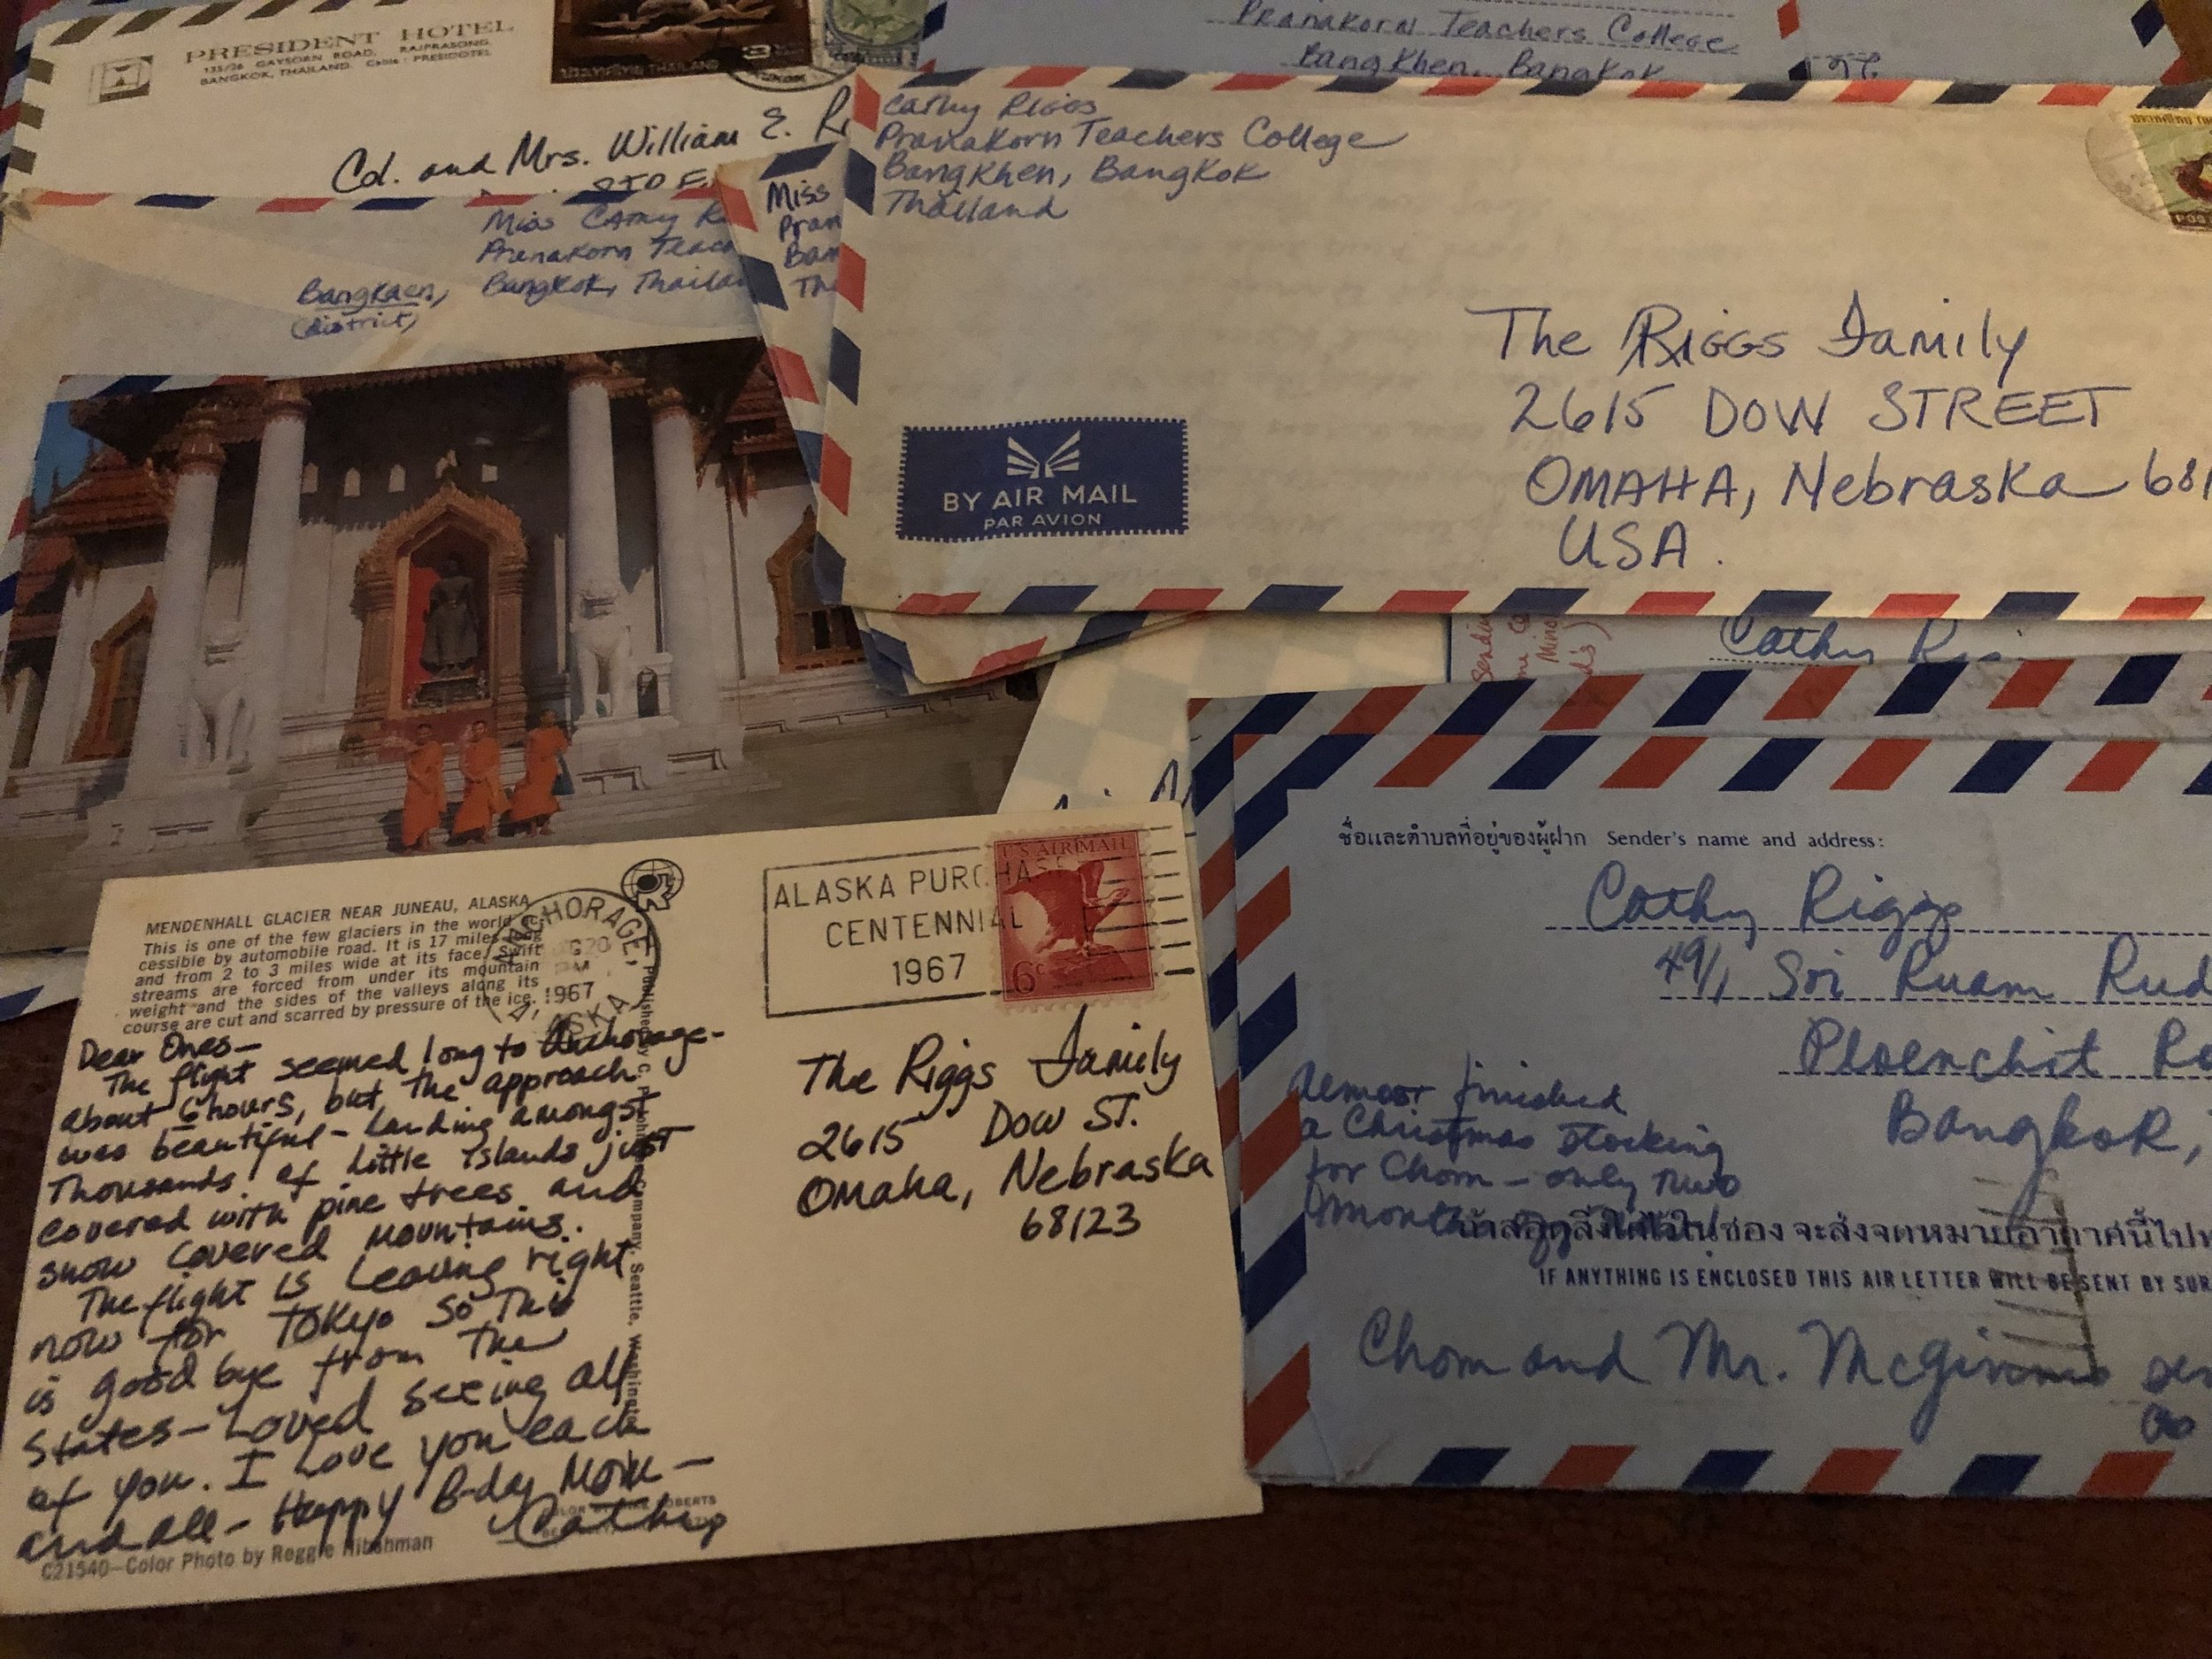 PRESIDENT HOTEL
135/26 GAYSORN ROAD, RAJPRASONG,
BANGKOK, THAILAND. Cable: PRESIDOTEL
3
THAILAND
Col. and Mrs. William E. Ri
Pranakorn Teachers College
BangKhen, Bangkok
Miss Cathy R
Pranakorn Teac
Bangkaen, Bangkok, Thailan
(district)
Miss
Pran
Ban
Tha
Cathy Riggs
Pranakorn Teachers College
BangKhen, Bangkok
Thailand
The Riggs Family
2615 DOW STREET
OMAHA, Nebraska 681
USA.
BY AIR MAIL
PAR AVION
Cathy Ri
MENDENHALL GLACIER NEAR JUNEAU, ALASKA
This is one of the few glaciers in the world ac-
cessible by automobile road. It is 17 miles long
and from 2 to 3 miles wide at its face. Swift
streams are forced from under its mountain
weight and the sides of the valleys along its
course are cut and scarred by pressure of the ice.
ANCHORAGE,
G 20
PM
1967
ALASKA
ALASKA PURCHASE
CENTENNIAL
1967
U.S. AIR MAIL
6c
Dear Ones—
The flight seemed long to Anchorage-
about 6 hours, but the approach
was beautiful - Landing amongst
Thousands of Little Islands just
covered with pine trees and
snow covered mountains.
The flight is Leaving right
now for Tokyo so this
is good bye from the
States - Loved seeing all
of you. I Love you each
and all - Happy B-day Mom —
Cathy
C21540—Color Photo by Reggie Hibshman
The Riggs Family
2615 Dow ST.
Omaha, Nebraska
68123
ชื่อและตำบลที่อยู่ของผู้ฝาก Sender's name and address:
Cathy Riggs
49/1 Soi Ruam Rud
Ploenchit Ro
Bangkok,
Almost finished
a Christmas stocking
for Chom - only two
months
จะส่งจดหมายอากาศนี้ไป
IF ANYTHING IS ENCLOSED THIS AIR LETTER WILL BE SENT BY SUR
Chom and Mr. McGinnis